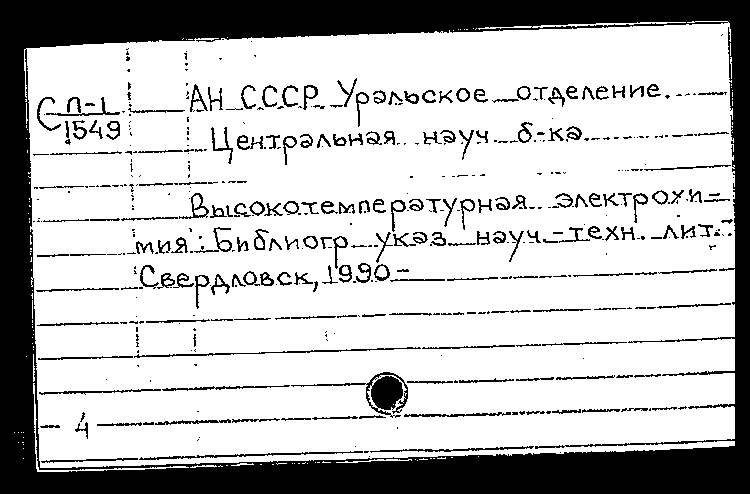 С П-1
1549
АН СССР. Уральское отделение.
Центральная науч. б-ка
Высокотемпературная электрохи=
мия: Библиогр. указ. науч.-техн. лит.-
Свердловск, 1990-
4